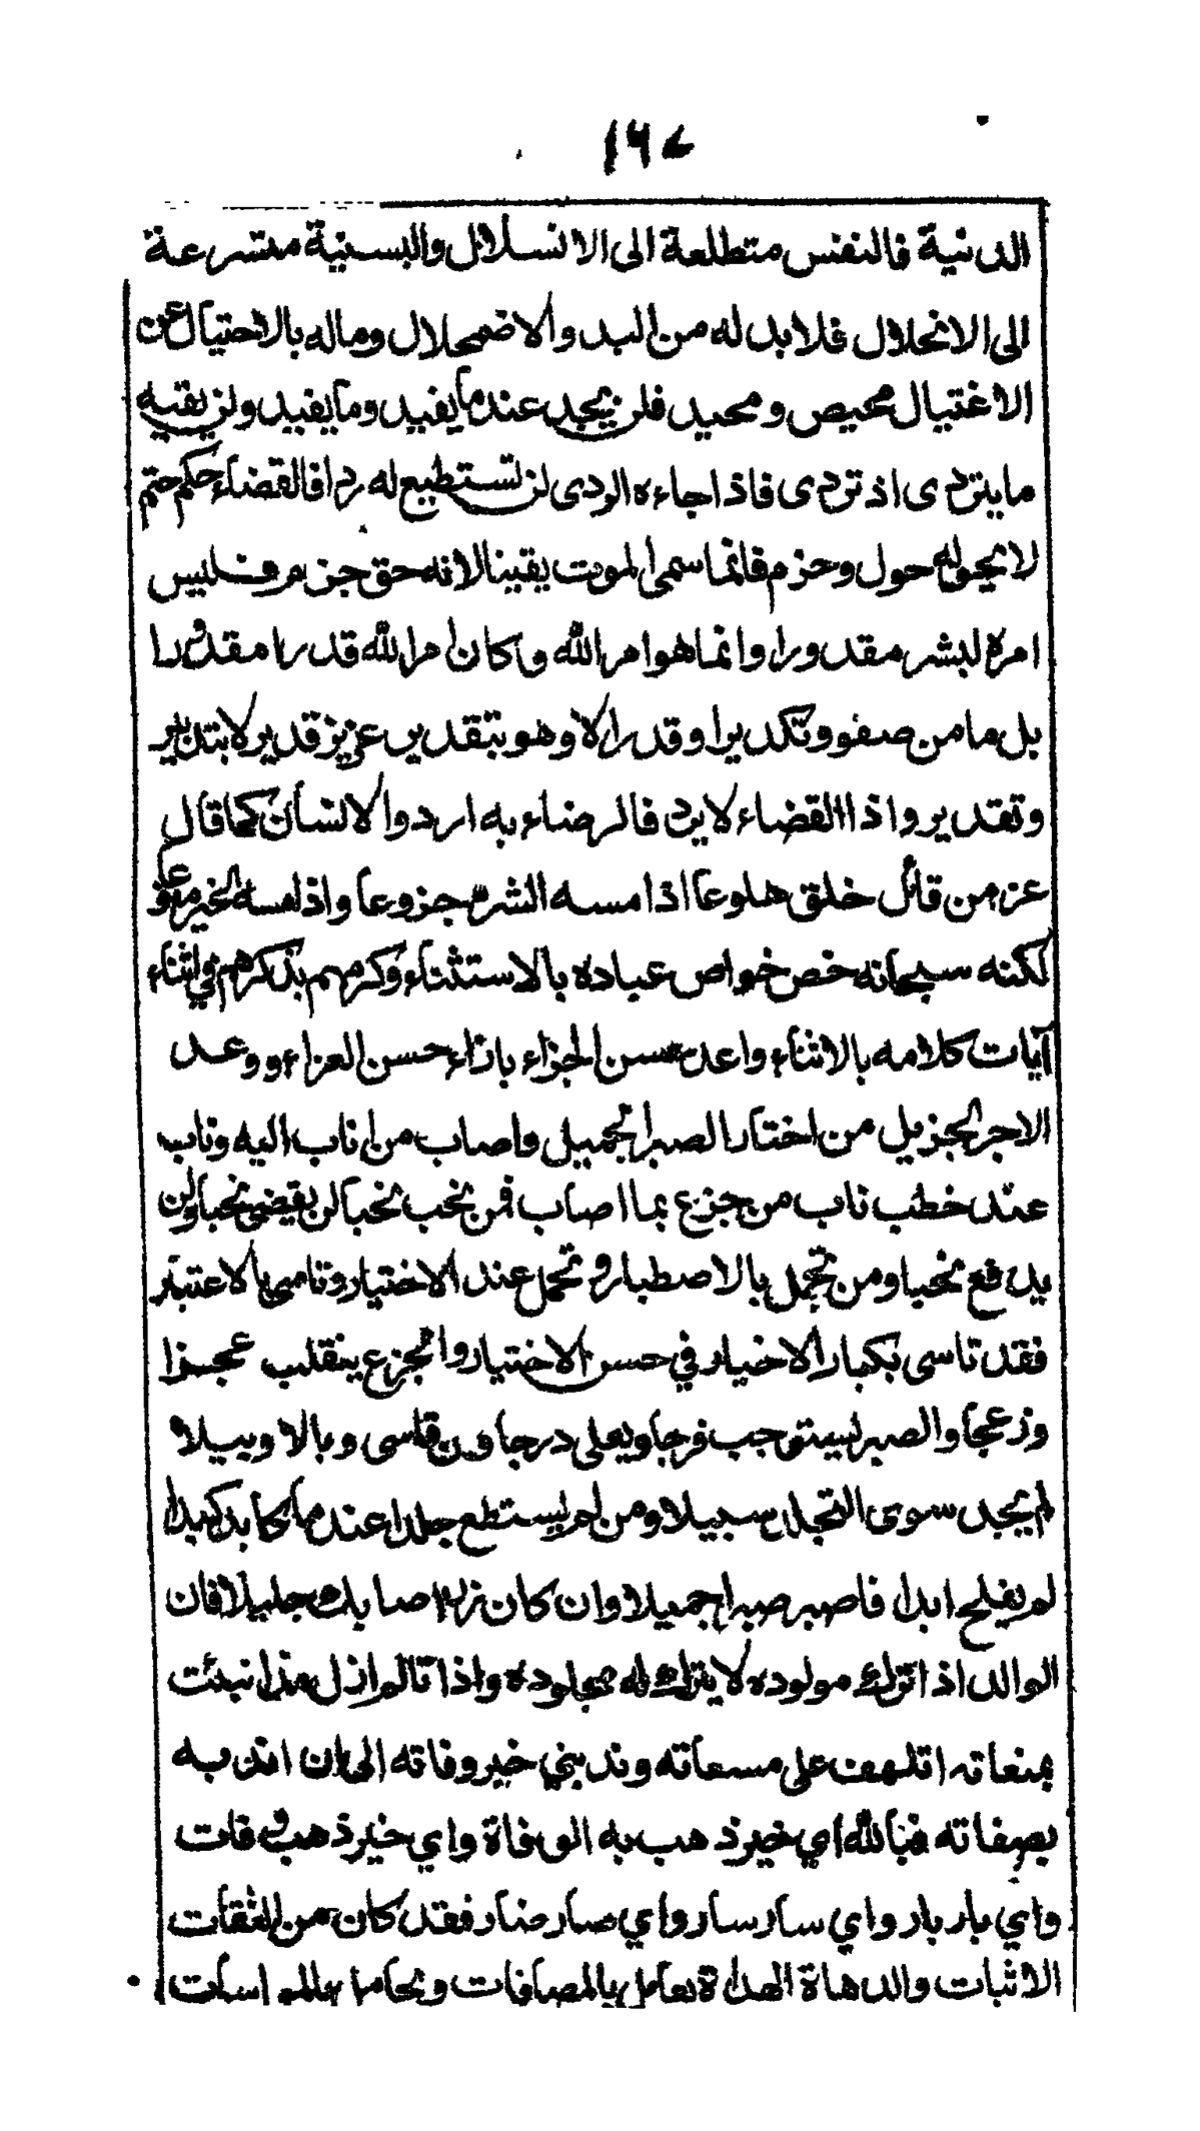 ١٦٧
الدنية فالنفس متطلعة الى الانسلال والبسنية متسرعة
الى الانحلال فلا بد له من البد والاضمحلال وماله بالاحتيال عن
الاغتيال محيص ومحيد فلن يجد عند ما يفيد وما يفيد ولن يقيه
ما يتردى اذ تردى فاذا جاءه الردى لن تستطيع له ردا فالقضاء حكم حتم
لا ينجى له حول وحزم فانما سمى الموت يقينا لانه حق جزم فليس
امره لبشر مقدورا وانما هو امر الله وكان امر الله قدرا مقدورا
بل ما من صفو وتكدير او قدر الا وهو بتقدير عزيز قدير لا بتدبير
وتقدير واذا القضاء لا يرد فالرضاء به ارد والانسان كما قال
عز من قائل خلق هلوعا اذا مسه الشر جزوعا واذا مسه الخير منوعا
لكنه سبحانه خص خواص عباده بالاستثناء وكرمهم بذكرهم في اثناء
آيات كلامه بالاثناء واعد حسن الجزاء بازاء حسن العزاء ووعد
الاجر الجزيل من اختار الصبر الجميل واصاب من اناب اليه وناب
عند خطب ناب من جزع بما اصاب فمن نحب نحبا لن يقضى نحبا ولن
يدفع نحبا ومن تجمل بالاصطبار وتحمل عند الاختيار وتاسى بالاعتبار
فقد تاسى بكبار الاخيار في حسن الاختيار والجزع ينقلب عجزا
وزعجا والصبر يستوجب فرجا ويعلى درجا ومن قاسى وبالا وبيلا
لم يجد سوى التجلد سبيلا ومن لم يستطع جلدا عند ما كابد كبدا
لم يفلح ابدا فاصبر صبرا جميلا وان كان رزء اصابك جليلا فان
الوالد اذا ترك مولوده لا يترك له مجلوده واذا تالم انزل منذ انبئت
بمنعاته اتلهف على مسعاته وندبني خير وفاته الى ان اندبه
بصفاته فبالله اي خير ذهب به الوفاة واي خير ذهب وفات
واي بار بار واي سار سار واي صار ضار فقد كان من الثقات
الاثبات والدهاة الهداة يعامل بالمصافات ويجامل بالمواسات